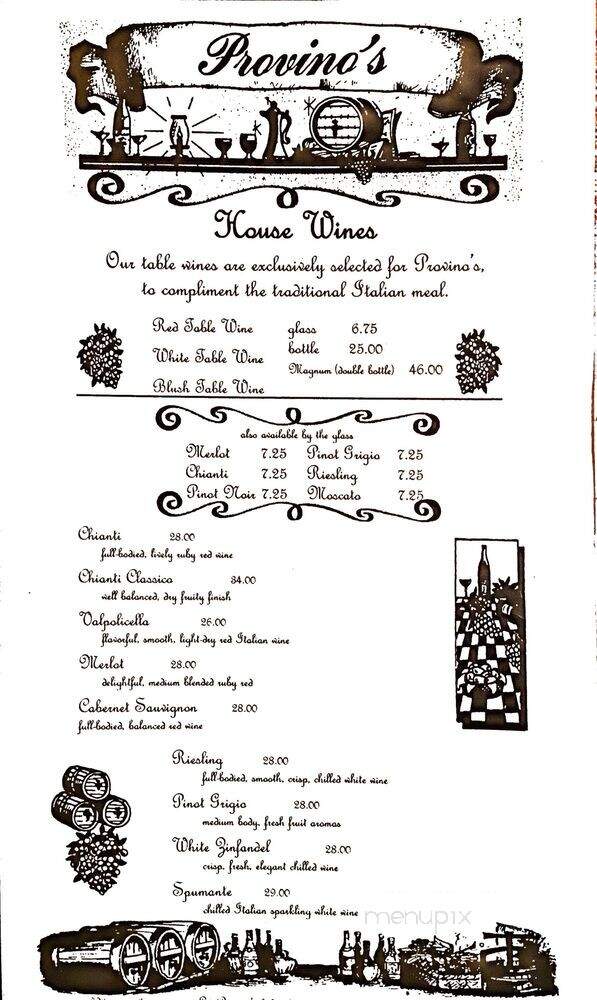 Provino's
House Wines
Our table wines are exclusively selected for Provino's,
to compliment the traditional Italian meal.
Red Table Wine glass 6.75
White Table Wine bottle 25.00
Blush Table Wine Magnum (double bottle) 46.00
also available by the glass
Merlot 7.25 Pinot Grigio 7.25
Chianti 7.25 Riesling 7.25
Pinot Noir 7.25 Moscato 7.25
Chianti 28.00
full-bodied, lively ruby red wine
Chianti Classico 34.00
well balanced, dry fruity finish
Valpolicella 26.00
flavorful, smooth, light-dry red Italian wine
Merlot 28.00
delightful, medium blended ruby red
Cabernet Sauvignon 28.00
full-bodied, balanced red wine
Riesling 28.00
full-bodied, smooth, crisp, chilled white wine
Pinot Grigio 28.00
medium body, fresh fruit aromas
White Zinfandel 28.00
crisp, fresh, elegant chilled wine
Spumante 29.00
chilled Italian sparkling white wine
menupix